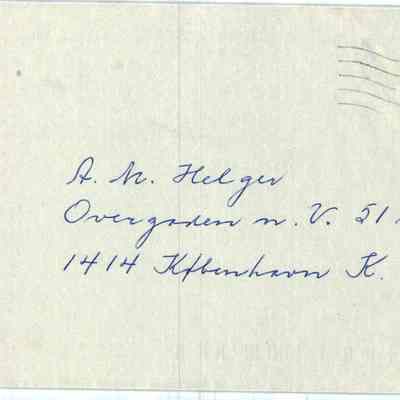 A. M. Helger
Overgaden n. V. 51
1414 København K.